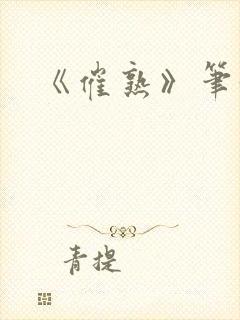 《催熟》筆
青提